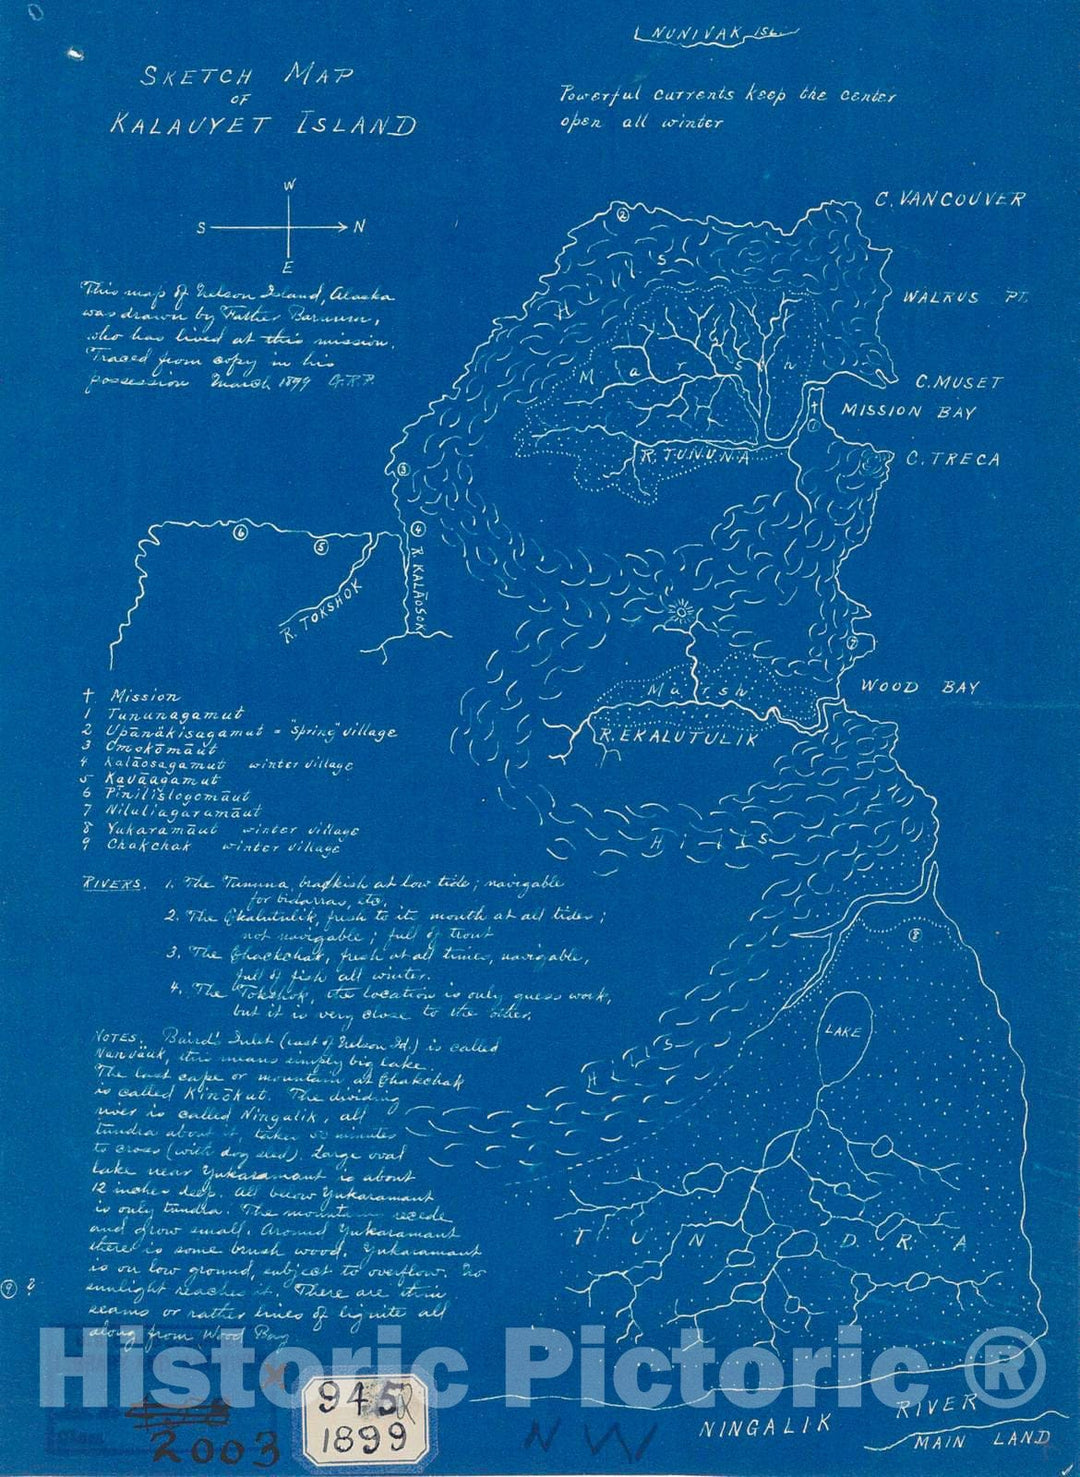 NUNIVAK ISL.
SKETCH MAP
OF
KALAUYET ISLAND
Powerful currents keep the center
open all winter
W
S N
E
This map of Nelson Island, Alaska
was drawn by Father Barnum,
who has lived at this mission.
Traced from copy in his
possession March 1899 G.R.P.
C. VANCOUVER
WALRUS PT.
C. MUSET
MISSION BAY
C. TRECA
WOOD BAY
2
HILLS
Marsh
1
R. TUNUNA
3
4
R. KALĀOSOK
5
6
R. TOKSHOK
7
Marsh
R. EKALUTULIK
HILLS
8
LAKE
HILLS
TUNDRA
† Mission
1 Tununagamut
2 Upānākisagamut = "Spring" village
3 Omokōmāut
4 Kalāosagamut winter village
5 Kavāagamut
6 Pīnilistogomāut
7 Niluliagāramāut
8 Yukaramāut winter village
9 Chakchak winter village
RIVERS. 1. The Tununa, brackish at low tide; navigable
for bidarras, etc.
2. The Ekalutulik, fresh to its mouth at all tides;
not navigable; full of trout
3. The Chackchak, fresh at all times, navigable,
full of fish all winter.
4. The Tokshok, the location is only guess work,
but it is very close to the other.
NOTES. Baird's Inlet (east of Nelson Id.) is called
Nanvāuk, this means simply big lake.
The last cape or mountain at Chakchak
is called Kinōkut. The dividing
river is called Ningalik, all
tundra about it, takes 50 minutes
to cross (with dog sled). Large oval
lake near Yukaramaut is about
12 inches deep. All below Yukaramaut
is only tundra. The mountains recede
and grow small. Around Yukaramaut
there is some brush wood. Yukaramaut
is on low ground, subject to overflow. No
sunlight reaches it. There are thin
seams or rather lines of lignite all
along from Wood Bay
9 ?
Historic Pictoric ®
945
1899
2003
NW
NINGALIK RIVER
MAIN LAND